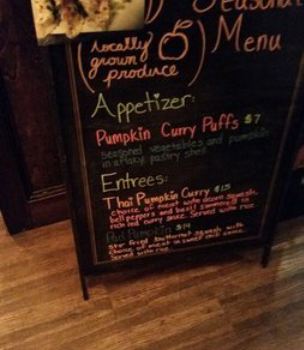 Seasonal
Menu
(locally
grown
produce)
Appetizer:
Pumpkin Curry Puffs $7
seasoned vegetables and pumpkin
in a flaky pastry shell
Entrees:
Thai Pumpkin Curry $15
choice of meat with
bell peppers and basil simmered in
red curry sauce. Served with rice
Pumpkin $14
stir fried butternut squash with
choice of meat in sweet chili sauce.
Served with rice